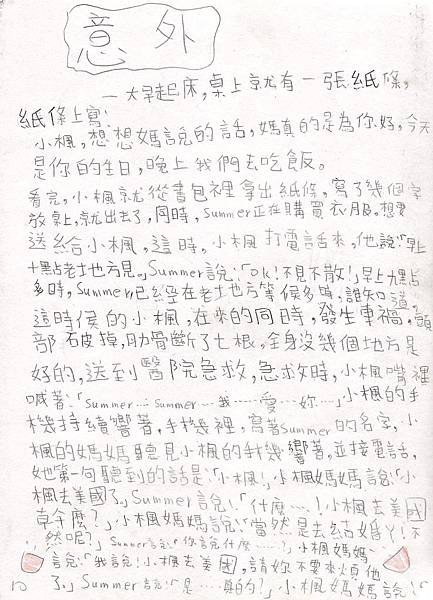 意外
一大早起床,桌上就有一張紙條,
紙條上寫:
小楓,想想媽說的話,媽真的是為你好,今天
是你的生日,晚上我們去吃飯。
看完,小楓就從書包裡拿出紙條,寫了幾個字
放桌上,就出去了,同時,Summer正在購買衣服,想要
送給小楓,這時,小楓打電話來,他說:「早上
十點老地方見。」Summer說:「ok!不見不散!」早上九點
多時,Summer已經在老地方等候多時,誰知道,
這時侯的小楓,在來的同時,發生車禍,頭
部破掉,肋骨斷了七根,全身沒幾個地方是
好的,送到醫院急救,急救時,小楓嘴裡
喊著:「Summer……Summer……我……愛……妳……」小楓的手
機持續響著,手機裡,寫著Summer的名字,小
楓的媽媽聽見小楓的手機響著,並接電話,
她第一句聽到的話是:「小楓!」小楓媽媽說:「小
楓去美國了。」Summer說:「什麼……!小楓去美國
幹什麼?」小楓媽媽說:「當然是去結婚丫!不
然呢?」Summer說:「你說什麼……?」小楓媽媽
說:「我說!小楓去美國,請妳不要來煩他
了。」Summer說:「是……真的?」小楓媽媽說:「
10